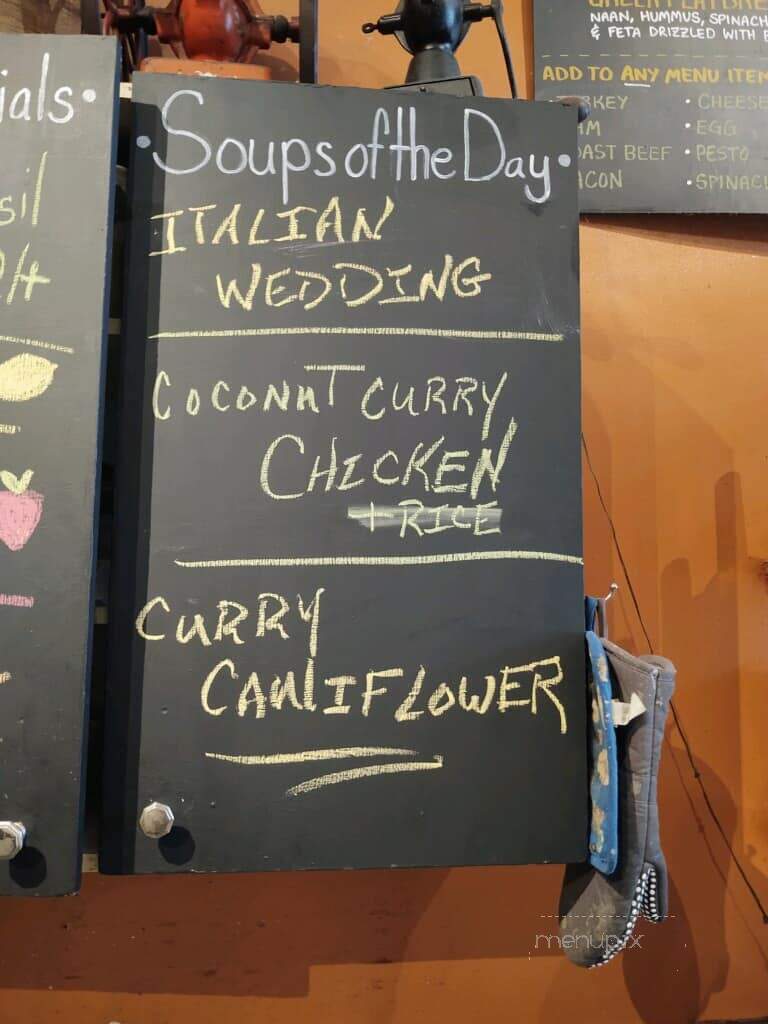 ials•
•Soups of the Day•
ITALIAN
WEDDING
COCONUT CURRY
CHICKEN
+ RICE
CURRY
CAULIFLOWER
NAAN, HUMMUS, SPINACH
& FETA DRIZZLED WITH
ADD TO ANY MENU ITEM
• CHEESE
• EGG
OAST BEEF • PESTO
ACON • SPINACH
menupix